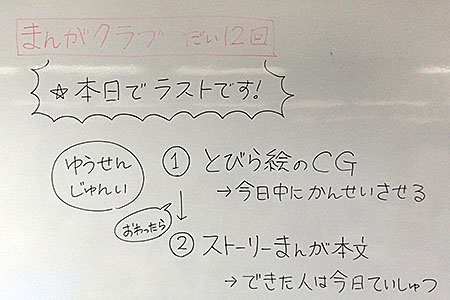 まんがクラブ だい12回
☆本日でラストです!
ゆうせん
じゅんい
① とびら絵のCG
→今日中にかんせいさせる
↓
おわったら
② ストーリーまんが本文
→できた人は今日ていしゅつ